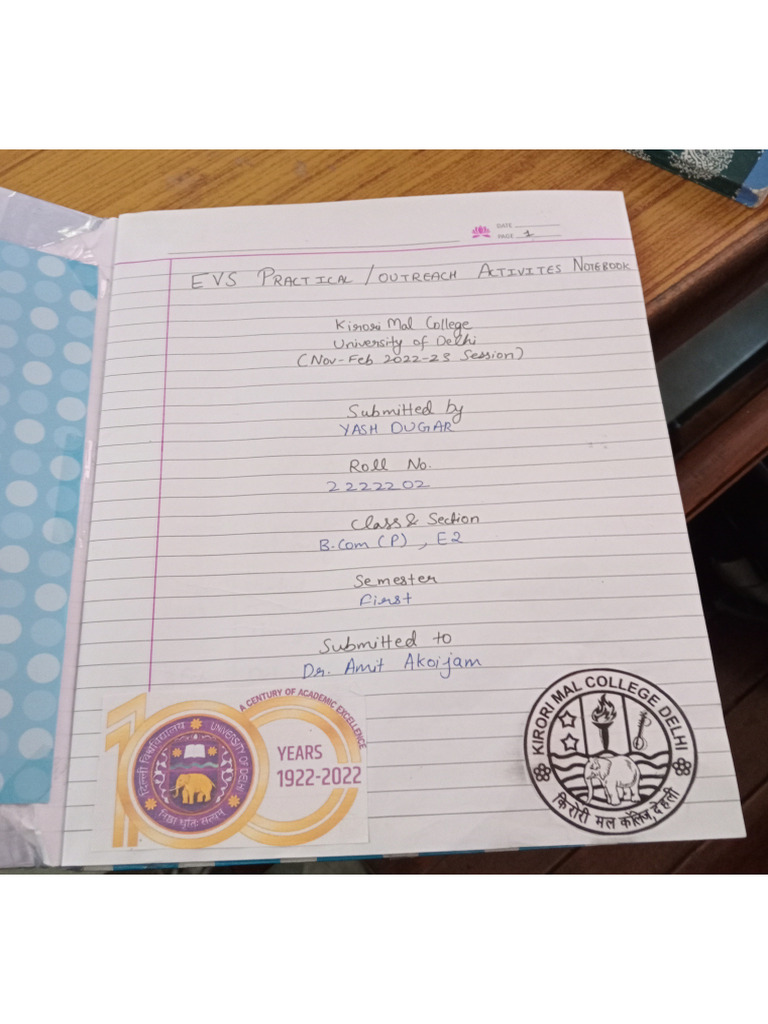 DATE
PAGE 1
EVS PRACTICAL / OUTREACH ACTIVITES NOTEBOOK
Kirori Mal College
University of Delhi
(Nov-Feb 2022-23 Session)
Submitted by
YASH DUGAR
Roll No.
2222202
Class & Section
B.Com (P) , E2
Semester
First
Submitted to
Dr. Amit Akoijam
A CENTURY OF ACADEMIC EXCELLENCE
100
YEARS
1922-2022
दिल्ली विश्वविद्यालय
UNIVERSITY OF DELHI
निष्ठा धृतिः सत्यम्
KIRORI MAL COLLEGE DELHI
किरोरी मल कॉलेज, देहली